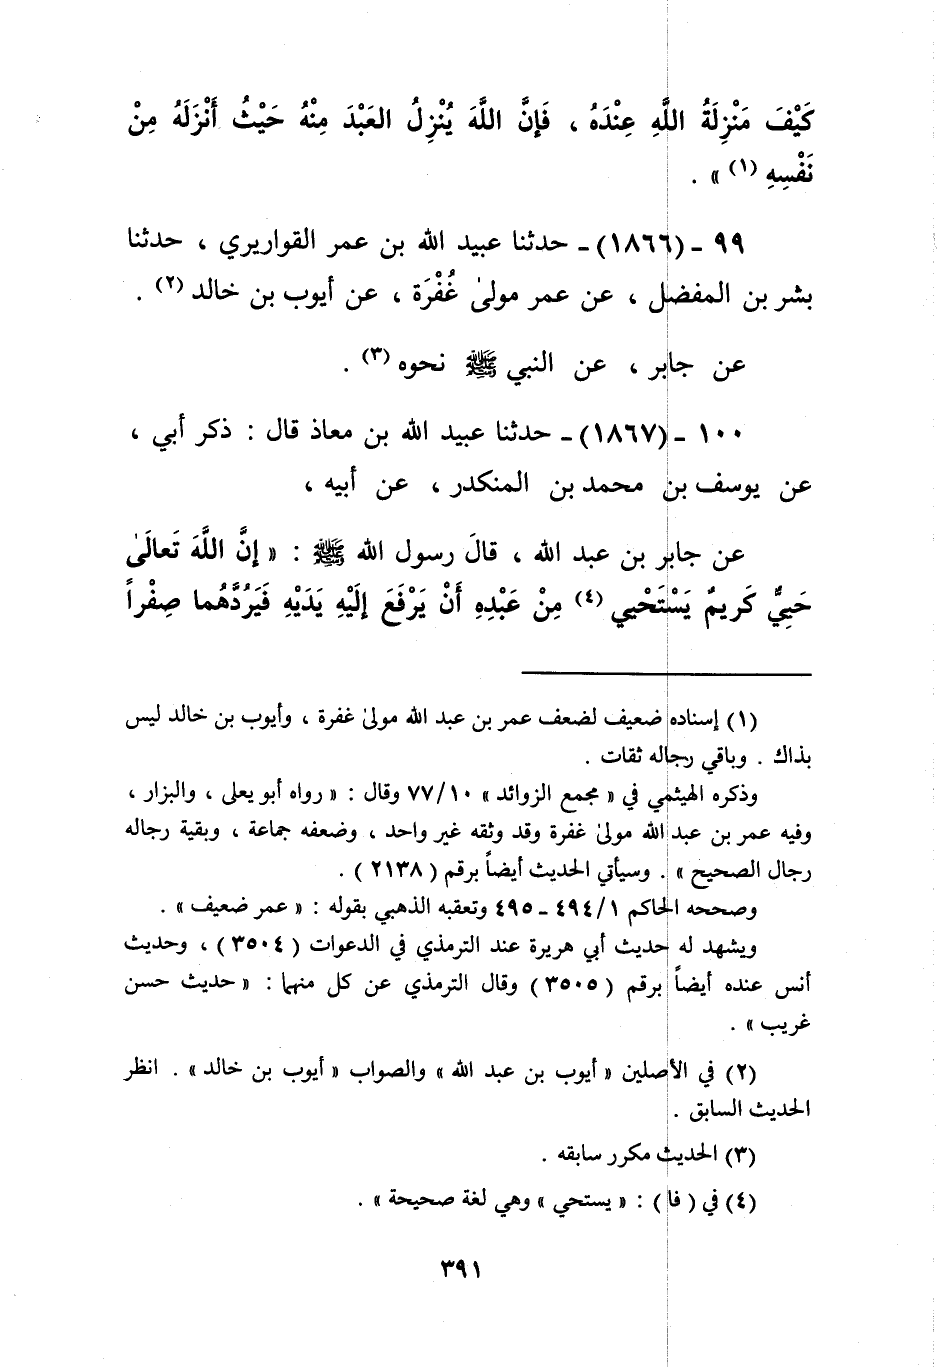 كَيْفَ مَنْزِلَةُ اللَّهِ عِنْدَهُ ، فَإِنَّ اللَّهَ يُنْزِلُ العَبْدَ مِنْهُ حَيْثُ أَنْزَلَهُ مِنْ
نَفْسِهِ (١) » .
٩٩ ـ (١٨٦٦) ـ حدثنا عبيد الله بن عمر القواريري ، حدثنا
بشر بن المفضل ، عن عمر مولىٰ غُفْرَة ، عن أيوب بن خالد (٢) .
عن جابر ، عن النبي ﷺ نحوه (٣) .
١٠٠ ـ (١٨٦٧) ـ حدثنا عبيد الله بن معاذ قال : ذكر أبي ،
عن يوسف بن محمد بن المنكدر ، عن أبيه ،
عن جابر بن عبد الله ، قالَ رسول الله ﷺ : « إنَّ اللَّهَ تَعالَىٰ
حَيِيٌّ كَريمٌ يَسْتَحْيي (٤) مِنْ عَبْدِهِ أَنْ يَرْفَعَ إلَيْهِ يَدَيْهِ فَيَرُدَّهُما صِفْراً
(١) إسناده ضعيف لضعف عمر بن عبد الله مولىٰ غفرة ، وأيوب بن خالد ليس
بذاك . وباقي رجاله ثقات .
وذكره الهيثمي في « مجمع الزوائد » ١٠/ ٧٧ وقال : « رواه أبو يعلى ، والبزار ،
وفيه عمر بن عبد الله مولىٰ غفرة وقد وثقه غير واحد ، وضعفه جماعة ، وبقية رجاله
رجال الصحيح » . وسيأتي الحديث أيضاً برقم ( ٢١٣٨ ) .
وصححه الحاكم ١/ ٤٩٤ ـ ٤٩٥ وتعقبه الذهبي بقوله : « عمر ضعيف » .
ويشهد له حديث أبي هريرة عند الترمذي في الدعوات ( ٣٥٠٤ ) ، وحديث
أنس عنده أيضاً برقم ( ٣٥٠٥ ) وقال الترمذي عن كل منهما : « حديث حسن
غريب » .
(٢) في الأصلين « أيوب بن عبد الله » والصواب « أيوب بن خالد » . انظر
الحديث السابق .
(٣) الحديث مكرر سابقه .
(٤) في ( فا ) : « يستحي » وهي لغة صحيحة » .
٣٩١